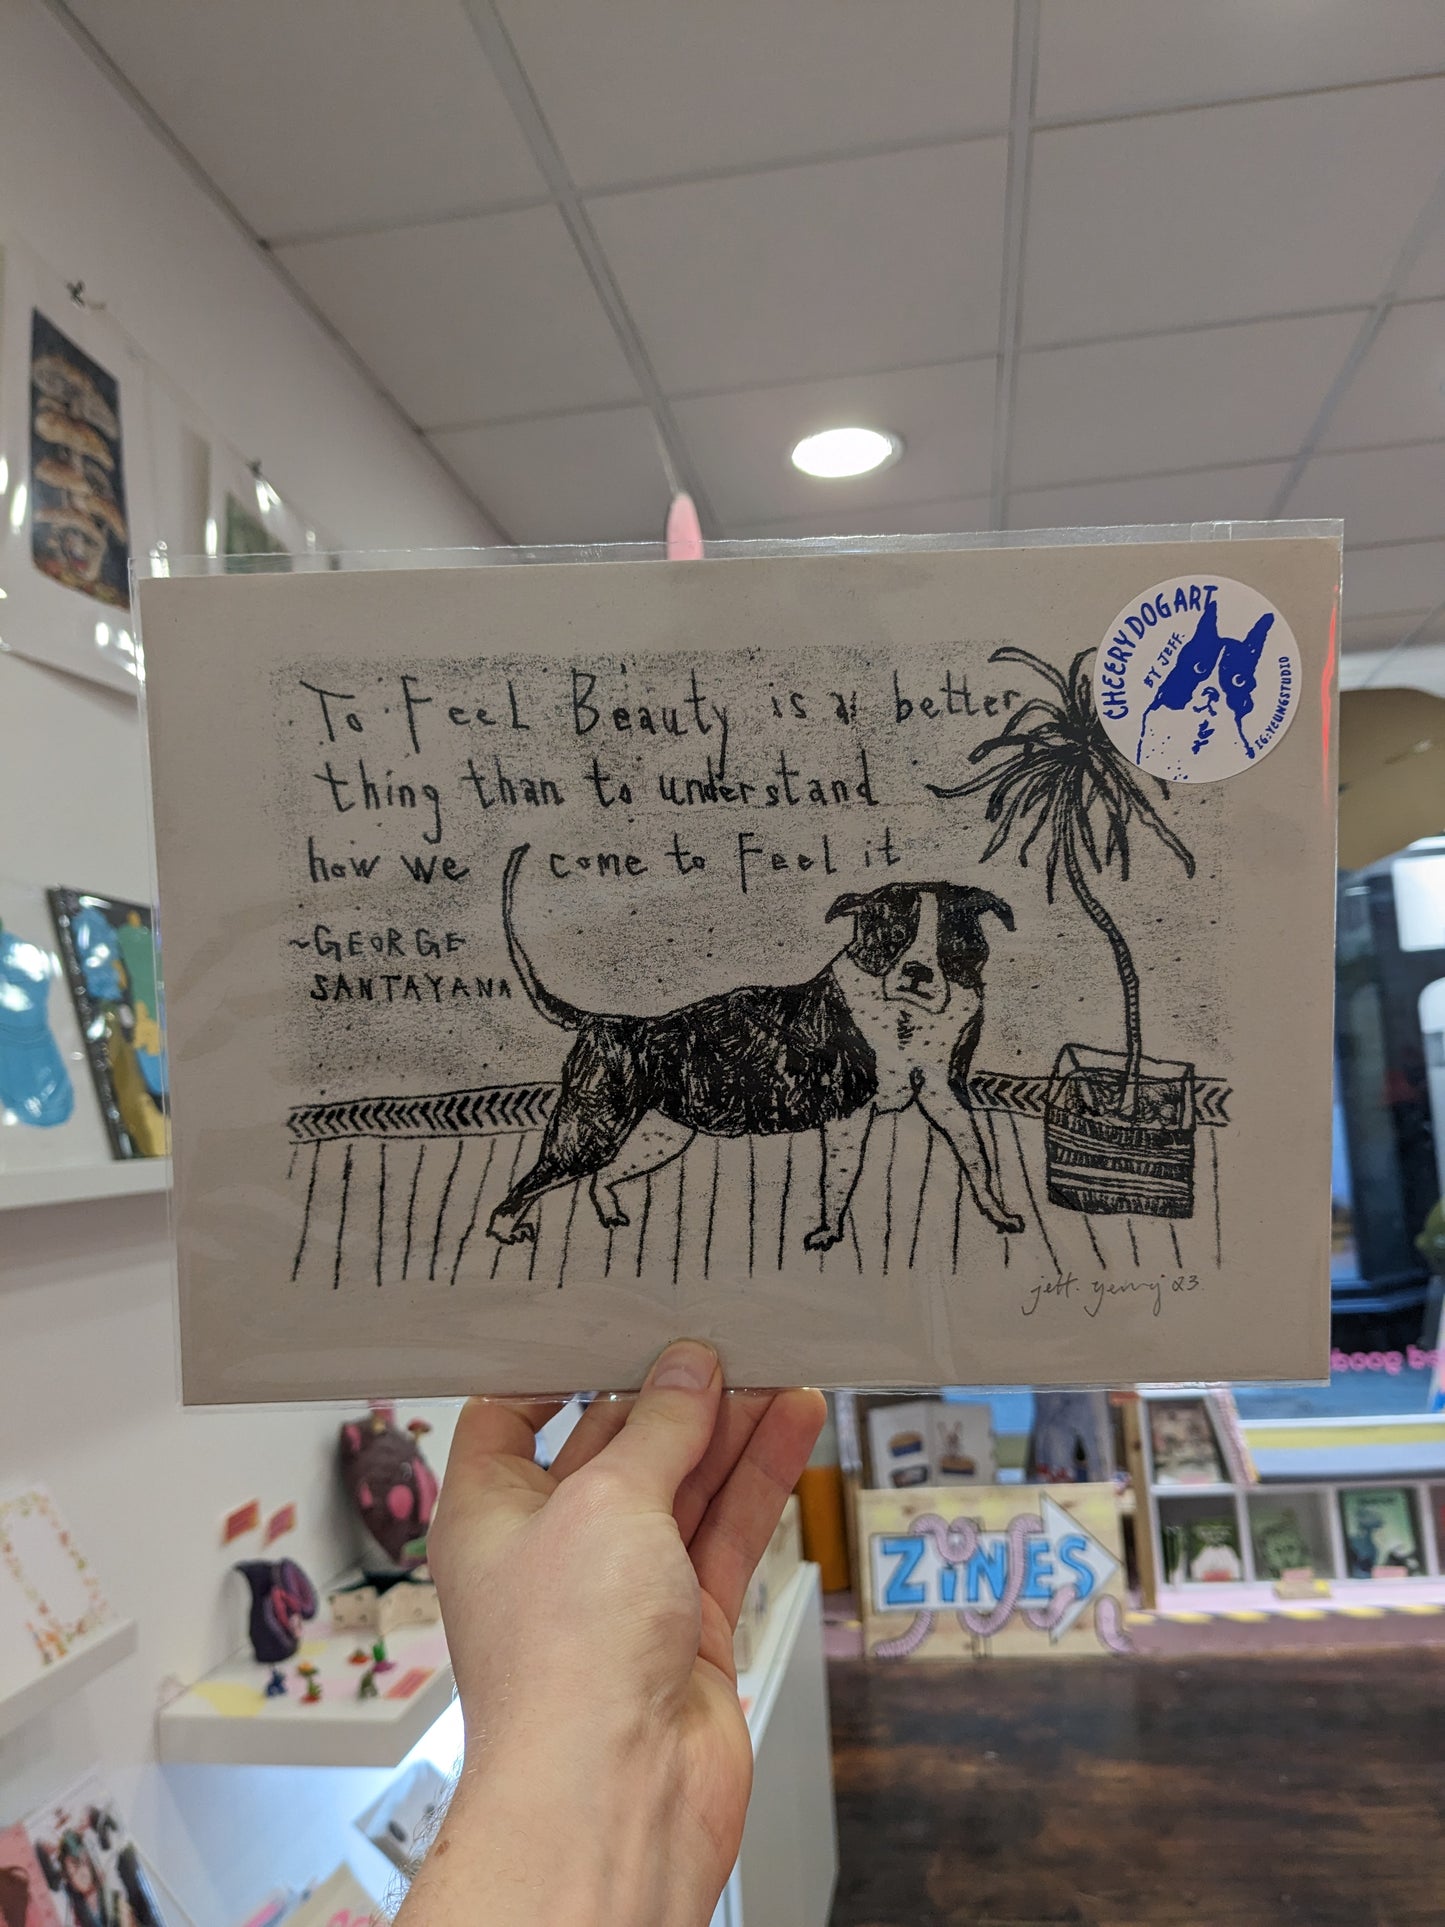 To Feel Beauty is a better
thing than to understand
how we come to Feel it
~GEORGE
SANTAYANA
CHEERY DOG ART
BY JEFF.
IG:YEUNGSTUDIO
jeff. yeung 23.
ZINES